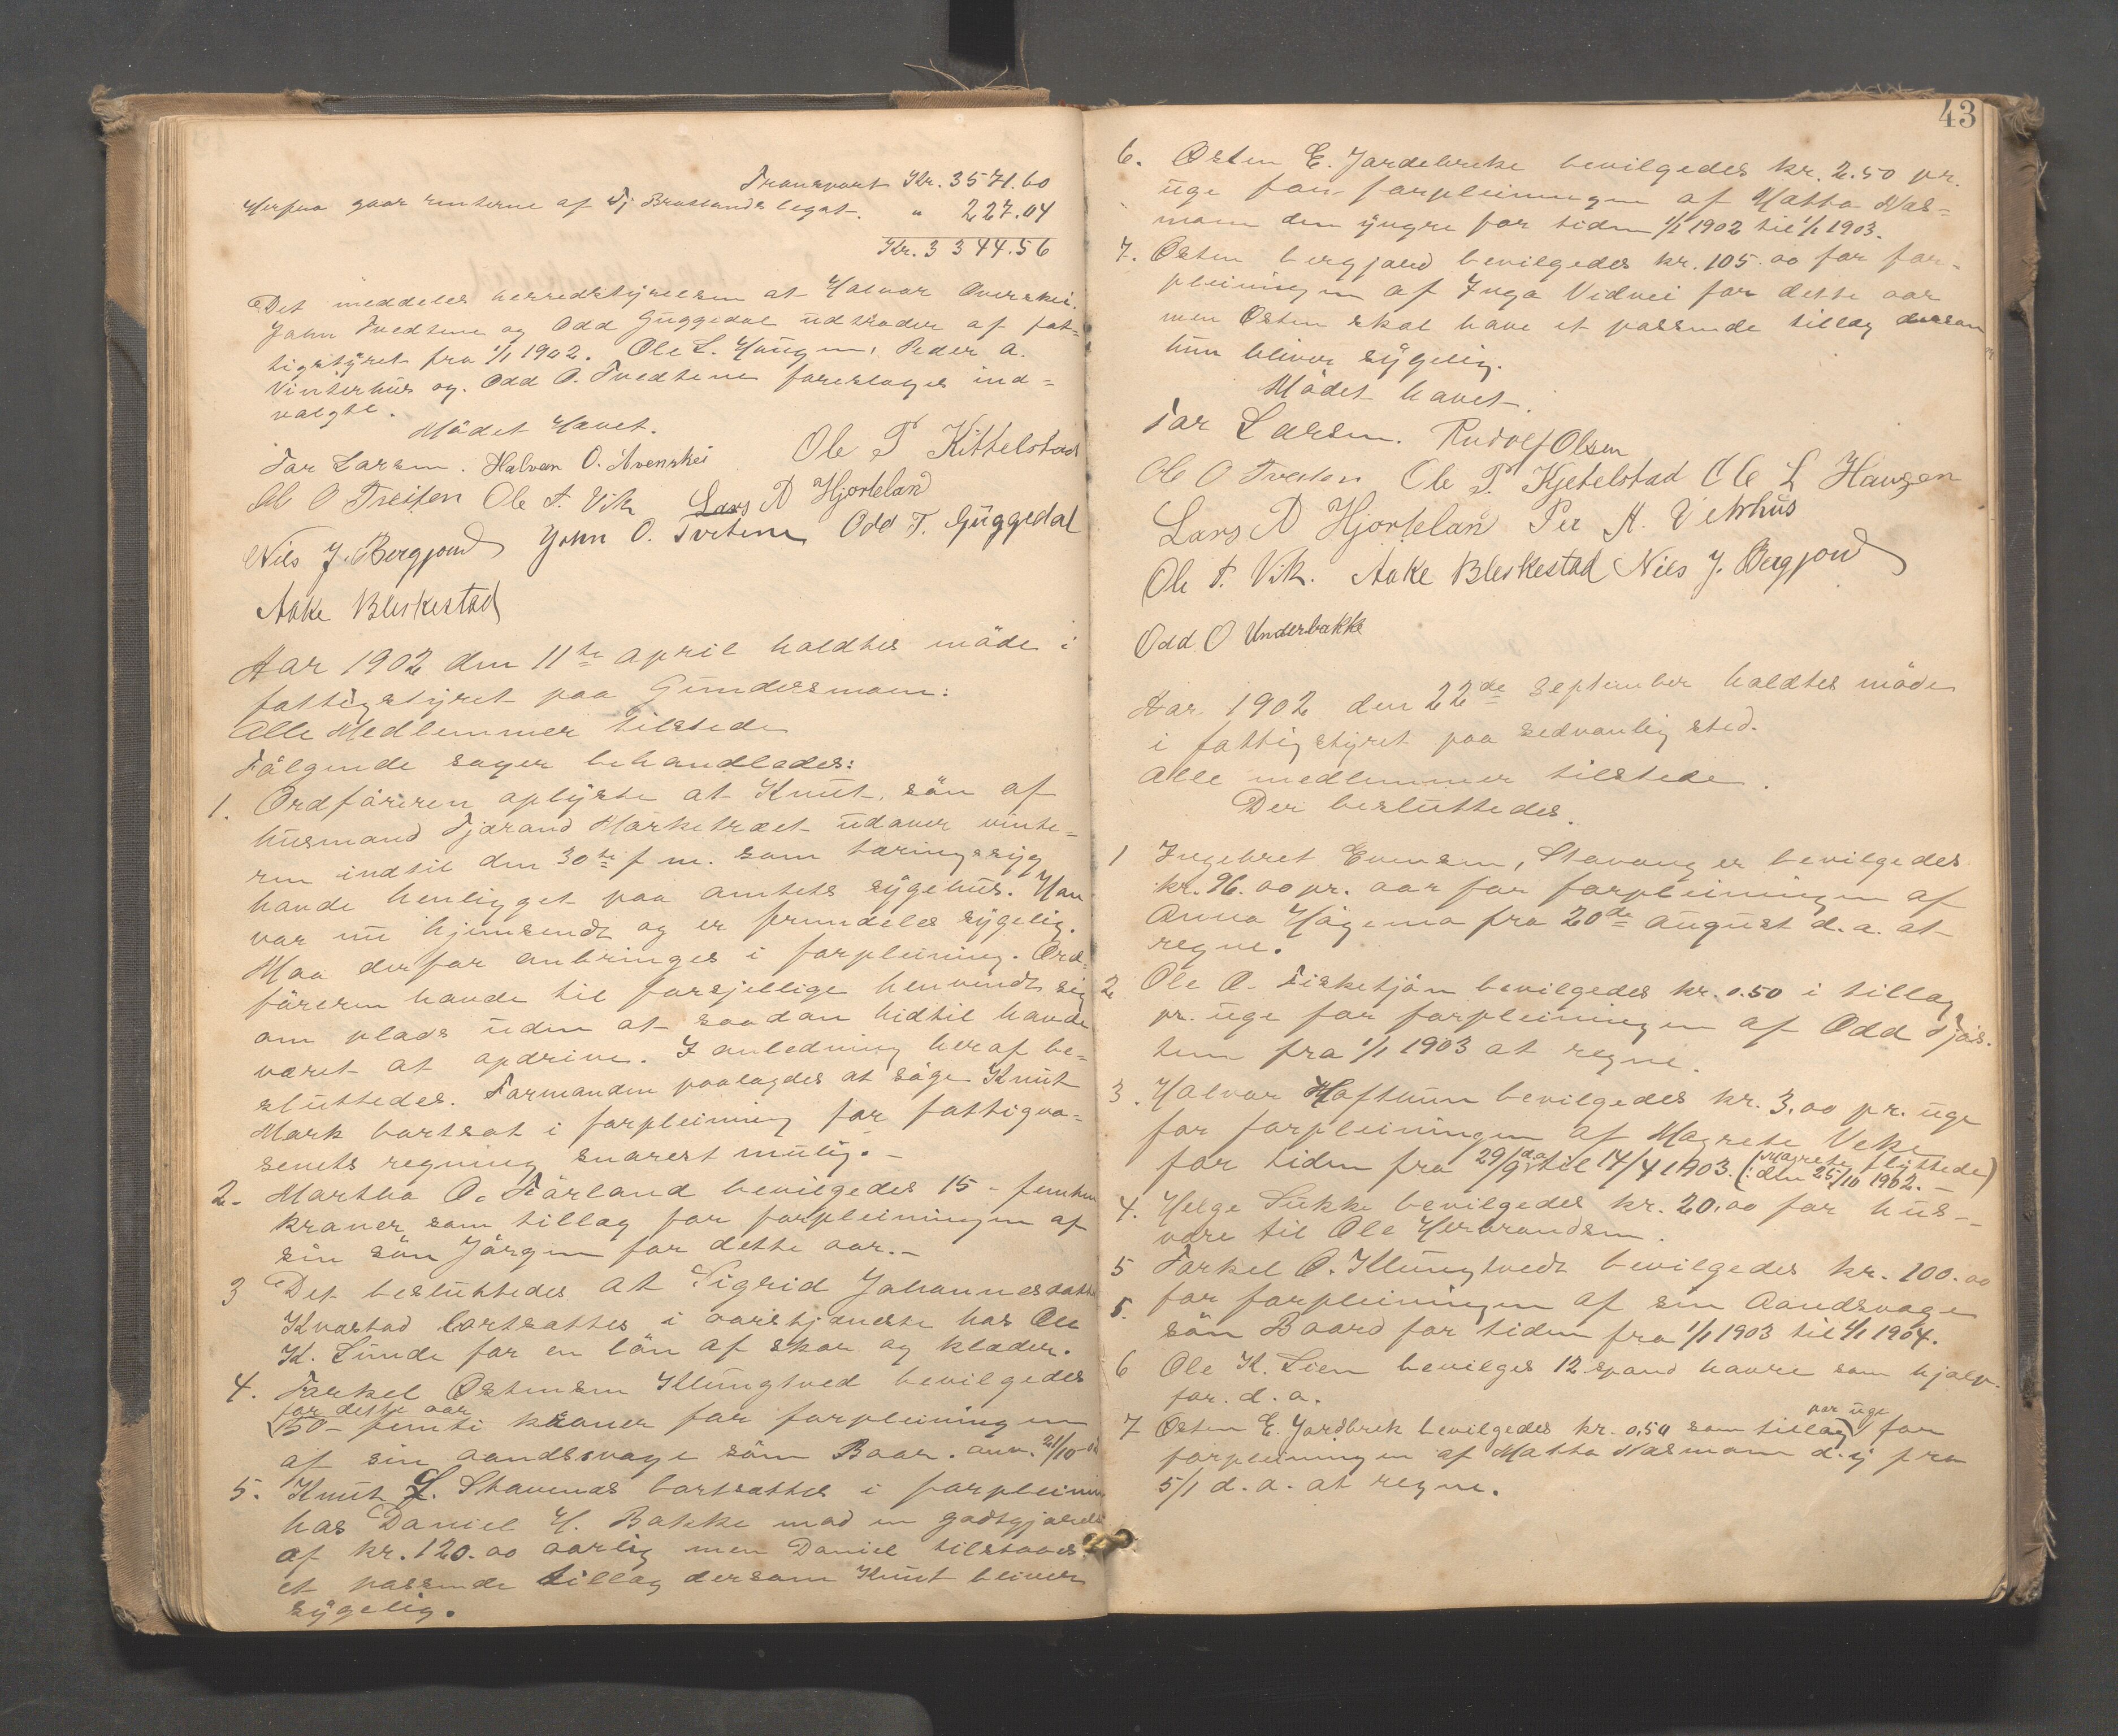 Transport Kr. 3571.60
Herfra gaar renterne af Tj Bratlands legat. " 227.04
Kr. 3 344.56
Det meddeles herredstyrelsen at Halvor Overskei.
John Tvedtene og Odd Guggedal udtræder af fat-
tigstyret fra 1/1 1902. Ole L. Haugen, Peder A.
Vinterhus og Odd O. Tvedtene foreslages ind-
valgte.
Mödet Hævet.
Tor Larsen. Halvor O. Avenskei Ole P Kittelstad
Ole O Treiten Ole T. Vik Lars A Hjortelan
Nils J. Bergjord John O. Tvetene Odd T. Guggedal
Aake Bleskestad
Aar 1902 den 11te april holdtes möde i
fattigstyret paa Gundersmoen:
Alle Medlemmer tilstede
Fölgende sager behandledes:
1. Ordföreren oplyste at Knut, sön af
husmand Tjærand Marketræet udover vinte-
ren indtil den 30te f m. som tæringssyg
havde henligget paa amtets sygehus. Han
var nu hjemsendt og er fremdeles sygelig.
Maa derfor anbringes i forpleining. Ord-
föreren havde til forsjellige henvendt sig
om plads uden at saadan hidtil havde
været at opdrive. I anledning heraf be-
sluttedes. Formanden paalagdes at söge Knut
Mark bortsat i forpleining for fattigvæ-
senets regning snarest mulig. -
2. Martha O. Förland bevilgedes 15 - femten
kroner som tillæg for forpleiningen af
sin sön Jörgen for dette aar. -
3 Det besluttedes at Sigrid Johannesdatter
Kvæstad bortsættes i aarstjeneste hos Ole
K. Lunde for en lön af skor og klæder.
4. Torkel Østensen Klungtved bevilgedes
for dette aar
50 - femti kroner for forpleiningen
af sin aandssvage sön Baar. anv. 21/10-02
5. Knut L. Stavenæs bortsættes i forpleining
hos Daniel H. Bakke mod en godtgjörelse
af kr. 120.00 aarlig men Daniel tilstaaes
et passende tillæg dersom Knut bliver
sygelig.
43
6. Østen E. Jordebreke bevilgedes kr. 2.50 pr.
uge for forpleiningen af Matta Næs-
moen den yngre for tiden 1/1 1902 til 1/1 1903.
7. Østen bergjord bevilgedes kr. 105.00 for for-
pleiningen af Inga Vidvei for dette aar
men Østen skal have et passende tillæg dersom
hun bliver sygelig.
Mödet hævet.
Tor Larsen. Rudolf Olsen
Ole O Treiten Ole P. Kjetelstad Ole L Haugen
Lars A Hjortelan Per A. Vetrhus
Ole T. Vik. Aake Bleskestad Nils J. Bergjord
Odd O Underbakke
Aar 1902 den 22de september holdtes möde
i fattigstyret paa sedvanlig sted.
Alle medlemmer tilstede.
Der besluttedes.
1 Ingebret Evensen, Stavanger bevilgedes
kr. 96.00 pr. aar for forpleiningen af
Anna Högemo fra 20de august d.a. at
regne.
2 Ole O. Fisketjön bevilgedes kr. 0.50 i tillæg
pr. uge for forpleiningen af Odd Tjös-
tem fra 1/1 1903 at regne.
3. Halvor Haftunn bevilgedes kr. 3.00 pr. uge
for forpleiningen af Magrete Veke
for tiden fra 29/9 d.a. til 14/4 1903. (: Magrete flyttede
den 25/10 1902. -)
4. Helge Sukke bevilgedes kr. 20.00 for hus-
være til Ole Herbrandsen.
5 Torkel O. Klungtvedt bevilgedes kr. 100.00
5. for forpleiningen af sin Aandsvage
sön Baard for tiden fra 1/1 1903 til 1/1 1904.
6 Ole K. Lien bevilges 12 spand havre som hjælp
for. d. a.
7 Østen E. Jordbrek bevilgedes kr. 0,50 som tillæg per uge for
forpleiningen af Matta Næsmoen d. y fra
5/1 d. a. at regne.